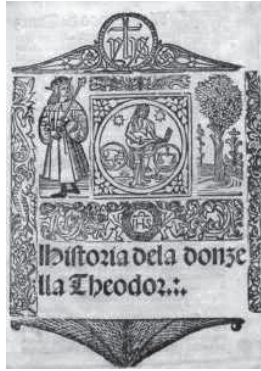 yhs
Historia dela donze
lla Theodor.:.